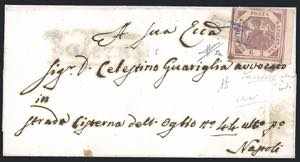 POSTA
A Sua Ecc.a
Sigr. D. Celestino Guariglia avvocato
in
Strada Cisterna dell'Oglio no. 44 ulto. po.
Napoli